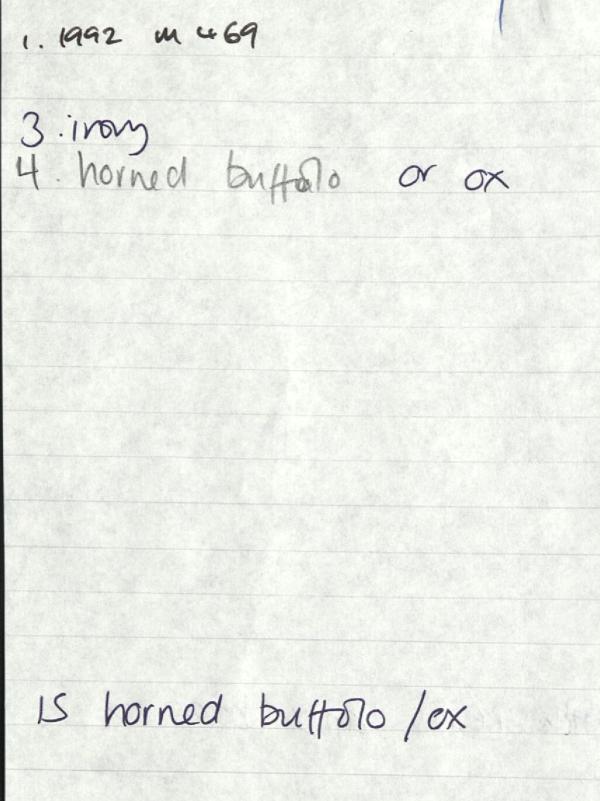 1. 1992 m 469
3. ivory
4. horned buffalo or ox
15 horned buffalo / ox